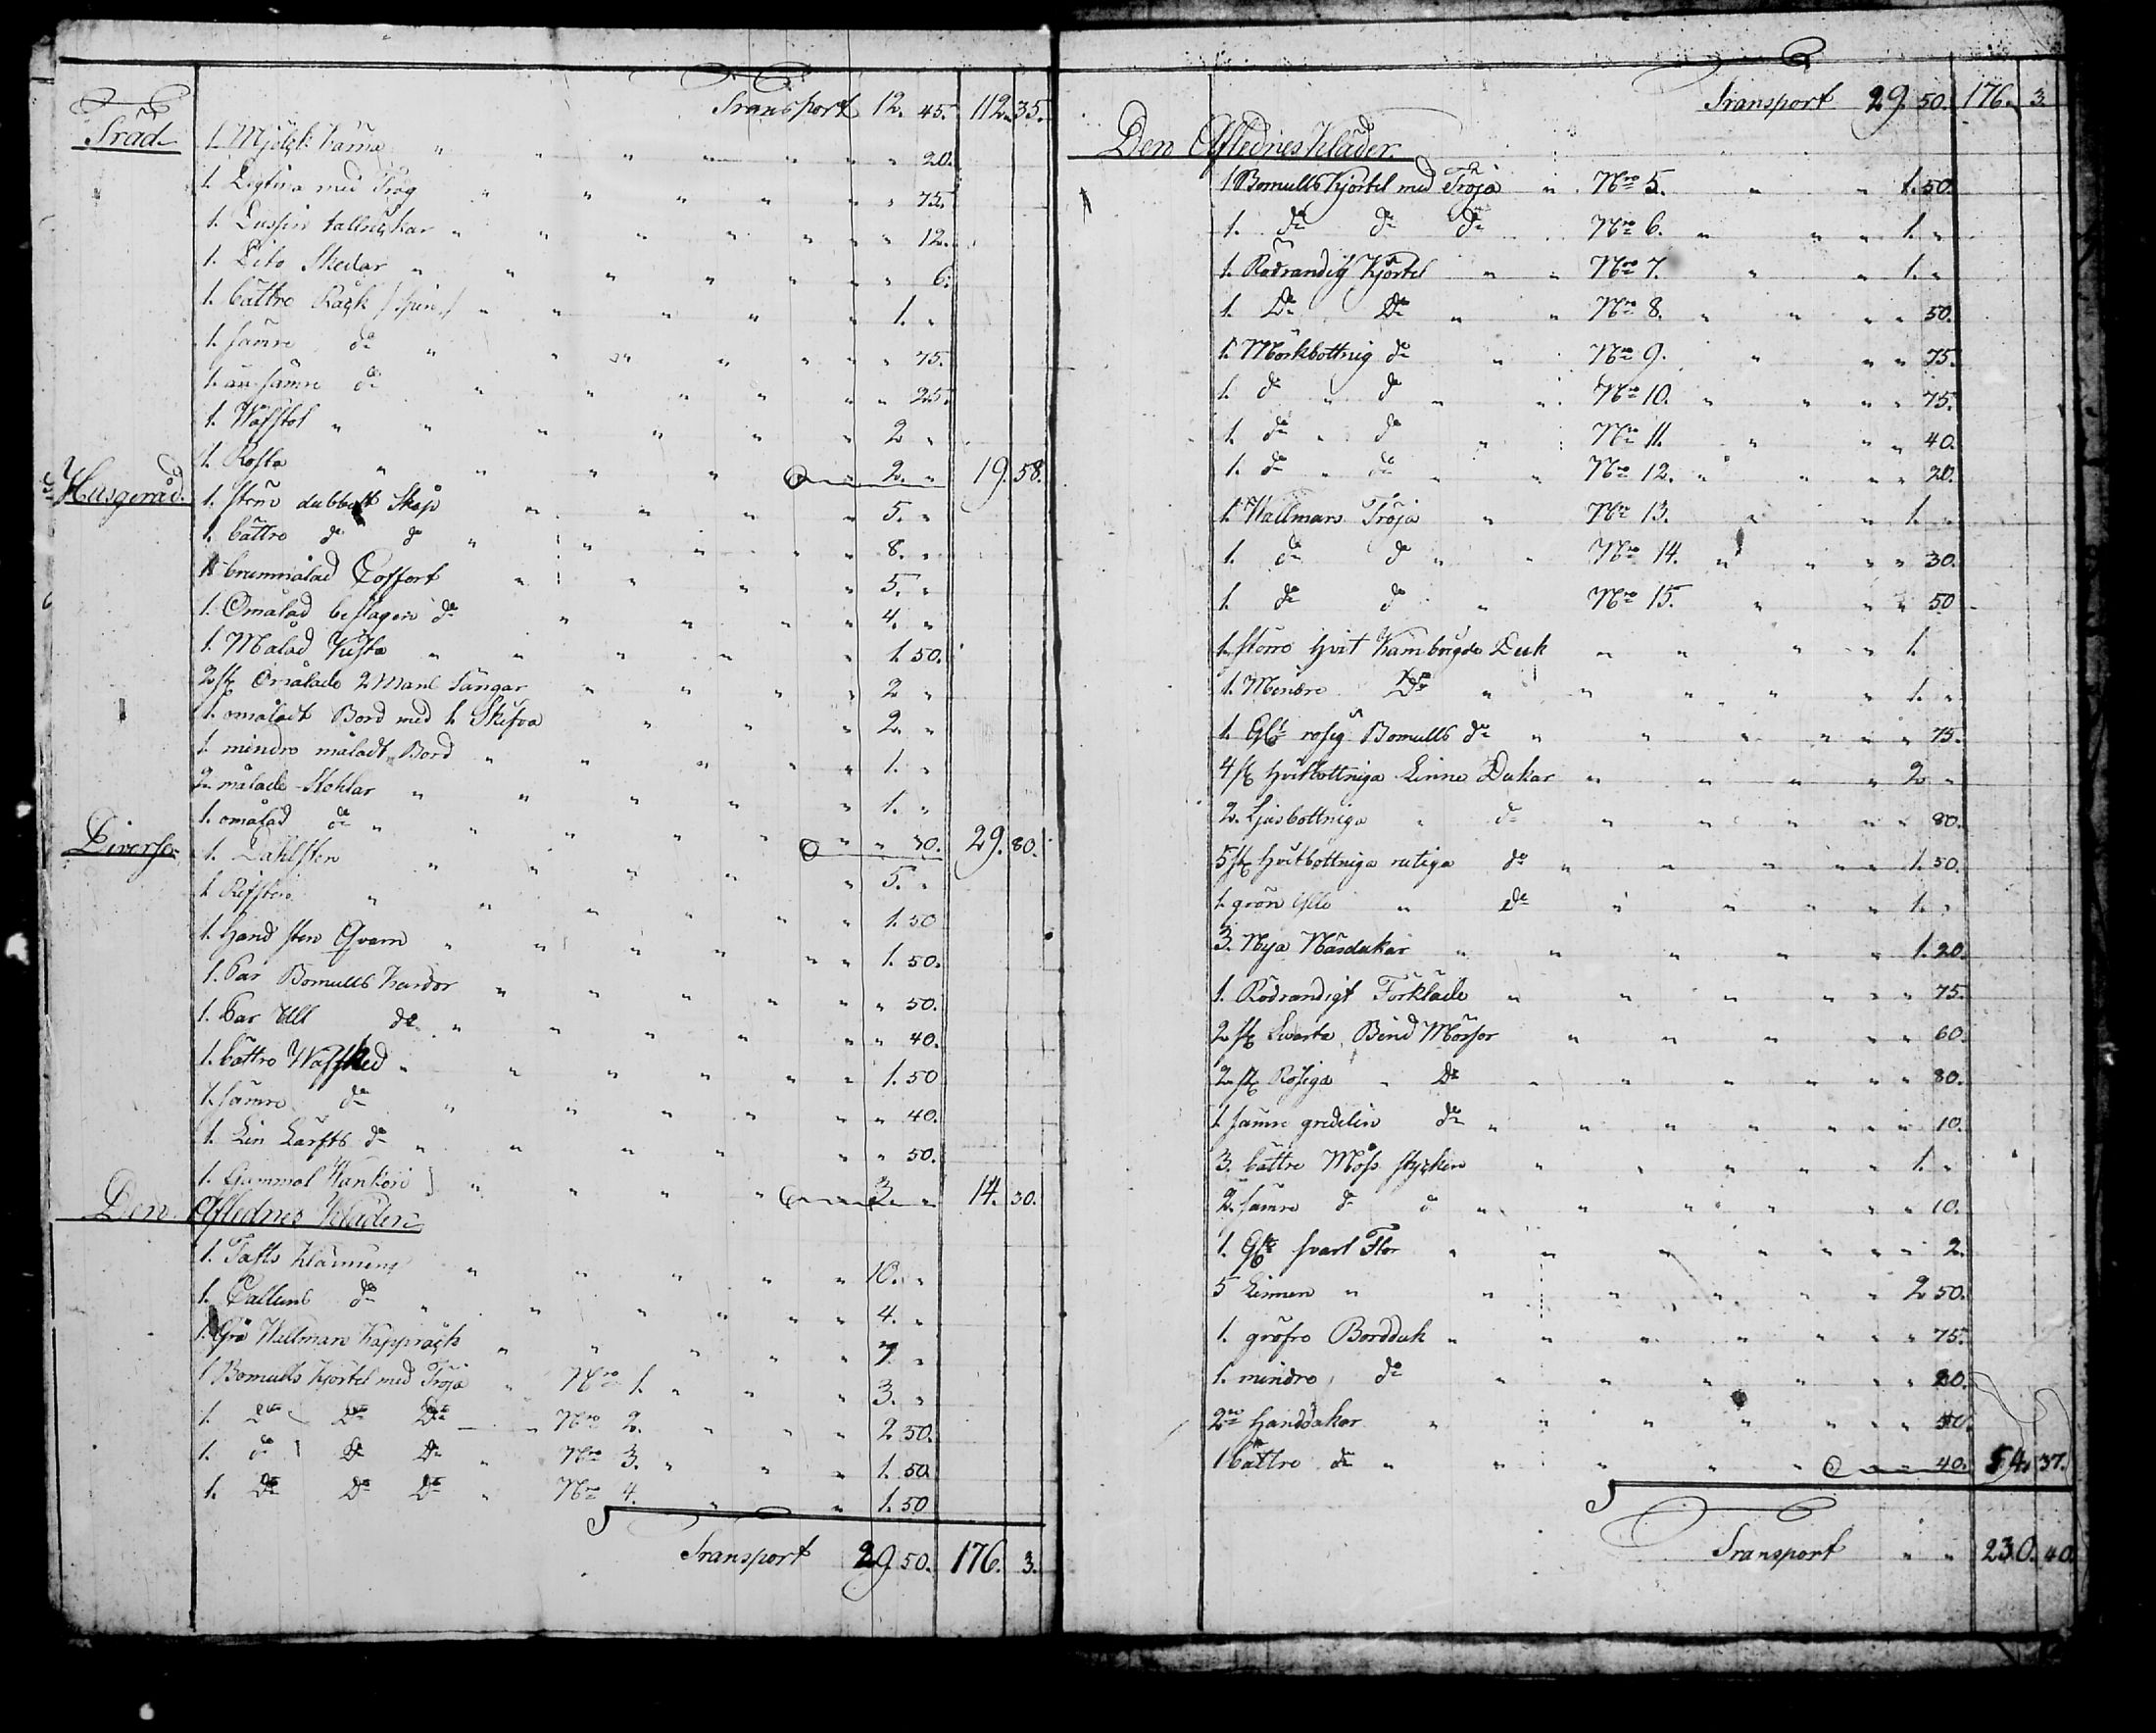 Transport 12. 45. 112. 35.
Träd
1. Mjölk kärna " 20.
1. med Tråg " 75.
1. Dussin tallrickar " 12.
1. Dito Skedar " 6.
1. bättre Råck /spin/ 1. "
1. sämre do " 75.
1. än sämre do " 25.
1. Wäfstol 2 "
1. Rosta 2. " 19. 58.
Husgeråd.
1. större dubbelt Skåp 5. "
1. bättre do do 8. "
1 brunmålad Coffert 5. "
1. Omålad beslagen do 4. "
1. Målad Kista 1. 50.
2 st. Omålade 2 Manl Sängar 2 "
1. omåladt Bord med 1. Skifva 2. "
1. mindre måladt Bord 1. "
2 målade Stohlar 1. "
1. omålad do " 30. 29. 80.
Diverse
1. 5. "
1 1. 50
1. Hand sten Qvarn 1. 50.
1. Par Bomulls Kardor " 50.
1. Par Ull do " 40.
1. bättre Wäfsked 1. 50
1. sämre do " 40.
1. Lin Lärfts do " 50.
1. Gammal 3. " 14. 30.
Den Aflednes Kläder
1. Tafts Klädning 10. "
1. Cattuns do 4. "
1. Grå Wallmans Kappråck 7. "
1 Bomulls Kjortel med Tröja Nro 1. 3. "
1. Do Do Do Nro 2. 2 50.
1. do Do Do Nro 3. 1. 50.
1. Do Do Do Nro 4. 1. 50
Transport 29. 50. 176. 3.
Transport 29. 50. 176. 3.
Den Aflednes Kläder.
1 Bomulls Kjortel med Tröja Nro 5. 1. 50.
1. do do do Nro 6. 1. "
1. Rödrandig Kjortel Nro 7. 1. "
1. Do Do Nro 8. " 50.
1. Mörkbottnig do Nro 9. " 75.
1. do do Nro 10. " 75.
1. do do Nro 11. " 40.
1. do do Nro 12. " 20.
1. Wallmars Tröja Nro 13. 1. "
1. do do Nro 14. " 30.
1. do do Nro 15. " 50
1. större hvit Duk 1.
1. Mindre Do 1. "
1. rosig Bomulls do " 75.
4 st. hvitbottniga Linne Dukar 2 "
2. Ljusbottniga do " 80.
5 st. hvitbottniga rutiga do 1. 50.
1. grön Ylle Do 1. "
3. Nya Näsdukar 1. 20.
1. Rödrandigt Förkläde " 75.
2 st. Svarta Bind Mössor " 60.
2 st. Rosiga Do " 80.
1. sämre gredelin do " 10.
3. bättre Möss stycken 1. "
2. sämre do do " 10.
1. svart Flor " 2.
5 Linnen 2 50.
1. gröfre Bordduk " 75.
1. mindre do " 20.
2ne Handdukar " 50.
1 bättre do " 40. 54. 37.
Transport " " 230. 40.